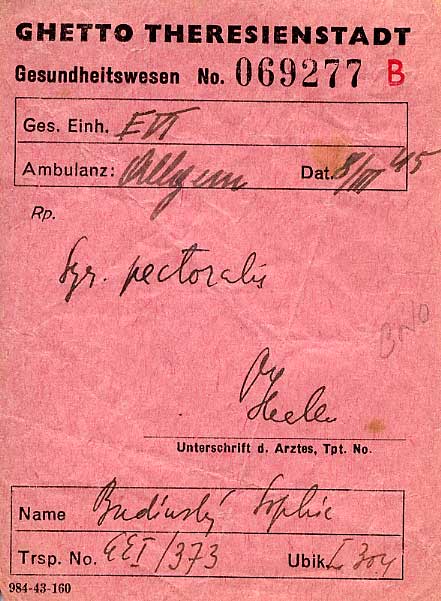 GHETTO THERESIENSTADT
Gesundheitswesen No. 069277 B
Ges. Einh. EVI
Ambulanz: Allgem Dat. 8/III 45
Rp.
Syr. pectoralis
BNO
Dr
Unterschrift d. Arztes, Tpt. No.
Name Budinský Sophie
Trsp. No. /373 Ubik. L 304
984-43-160